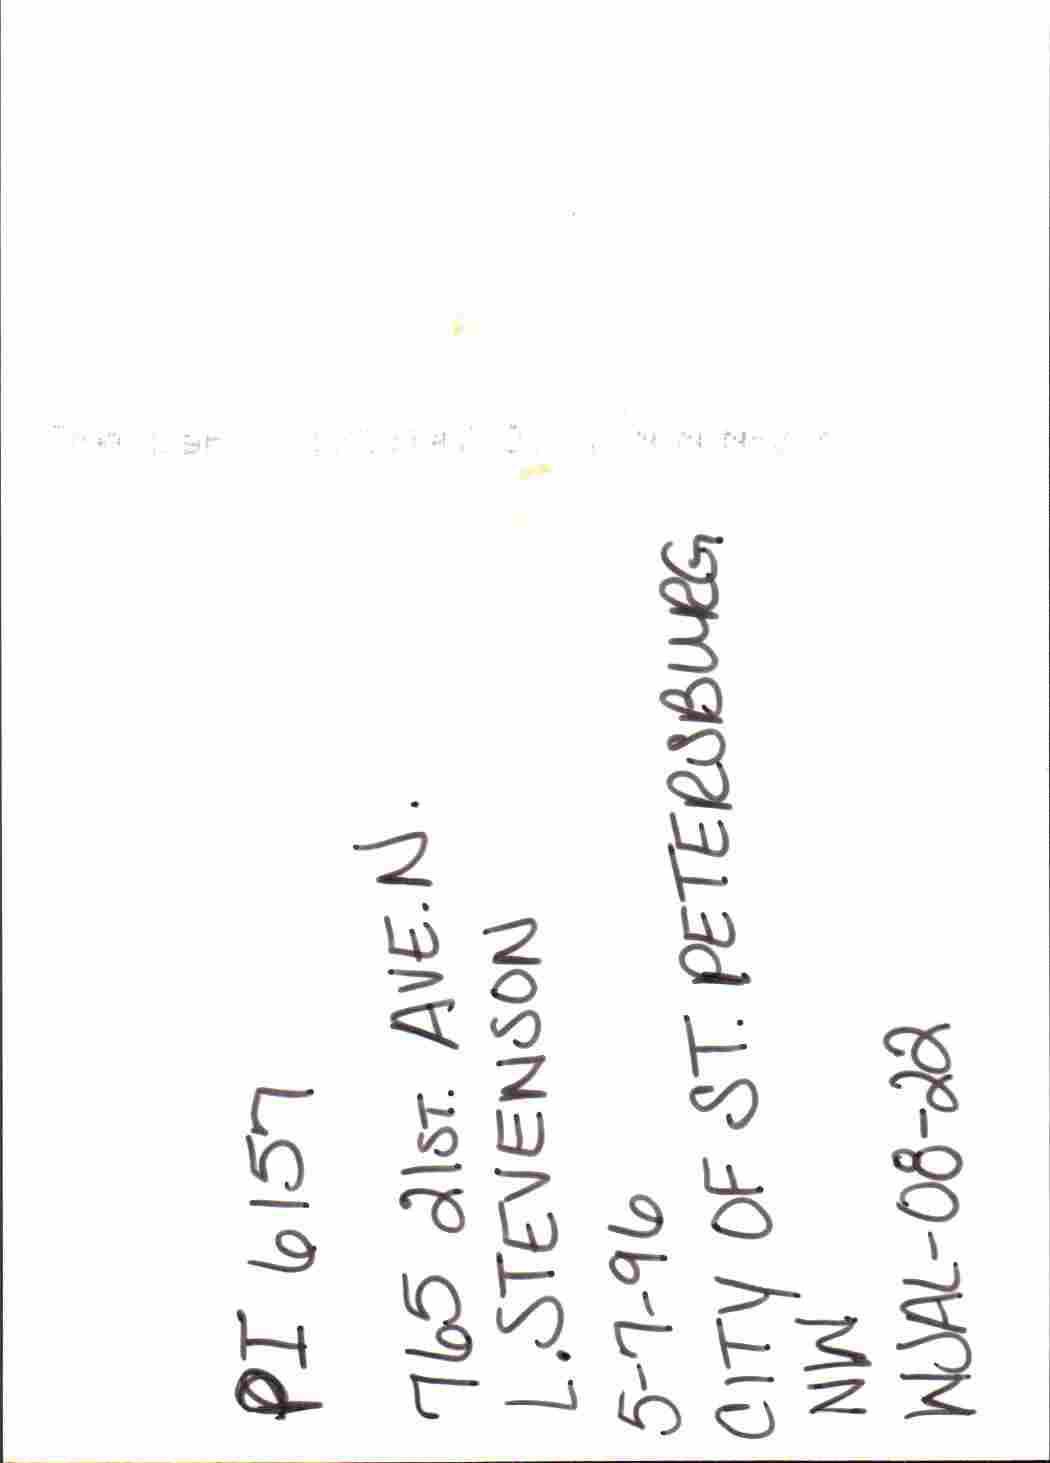 PI 6157
765 21ST. AVE. N.
L. STEVENSON
5-7-96
CITY OF ST. PETERSBURG
NW
WJAL-08-22